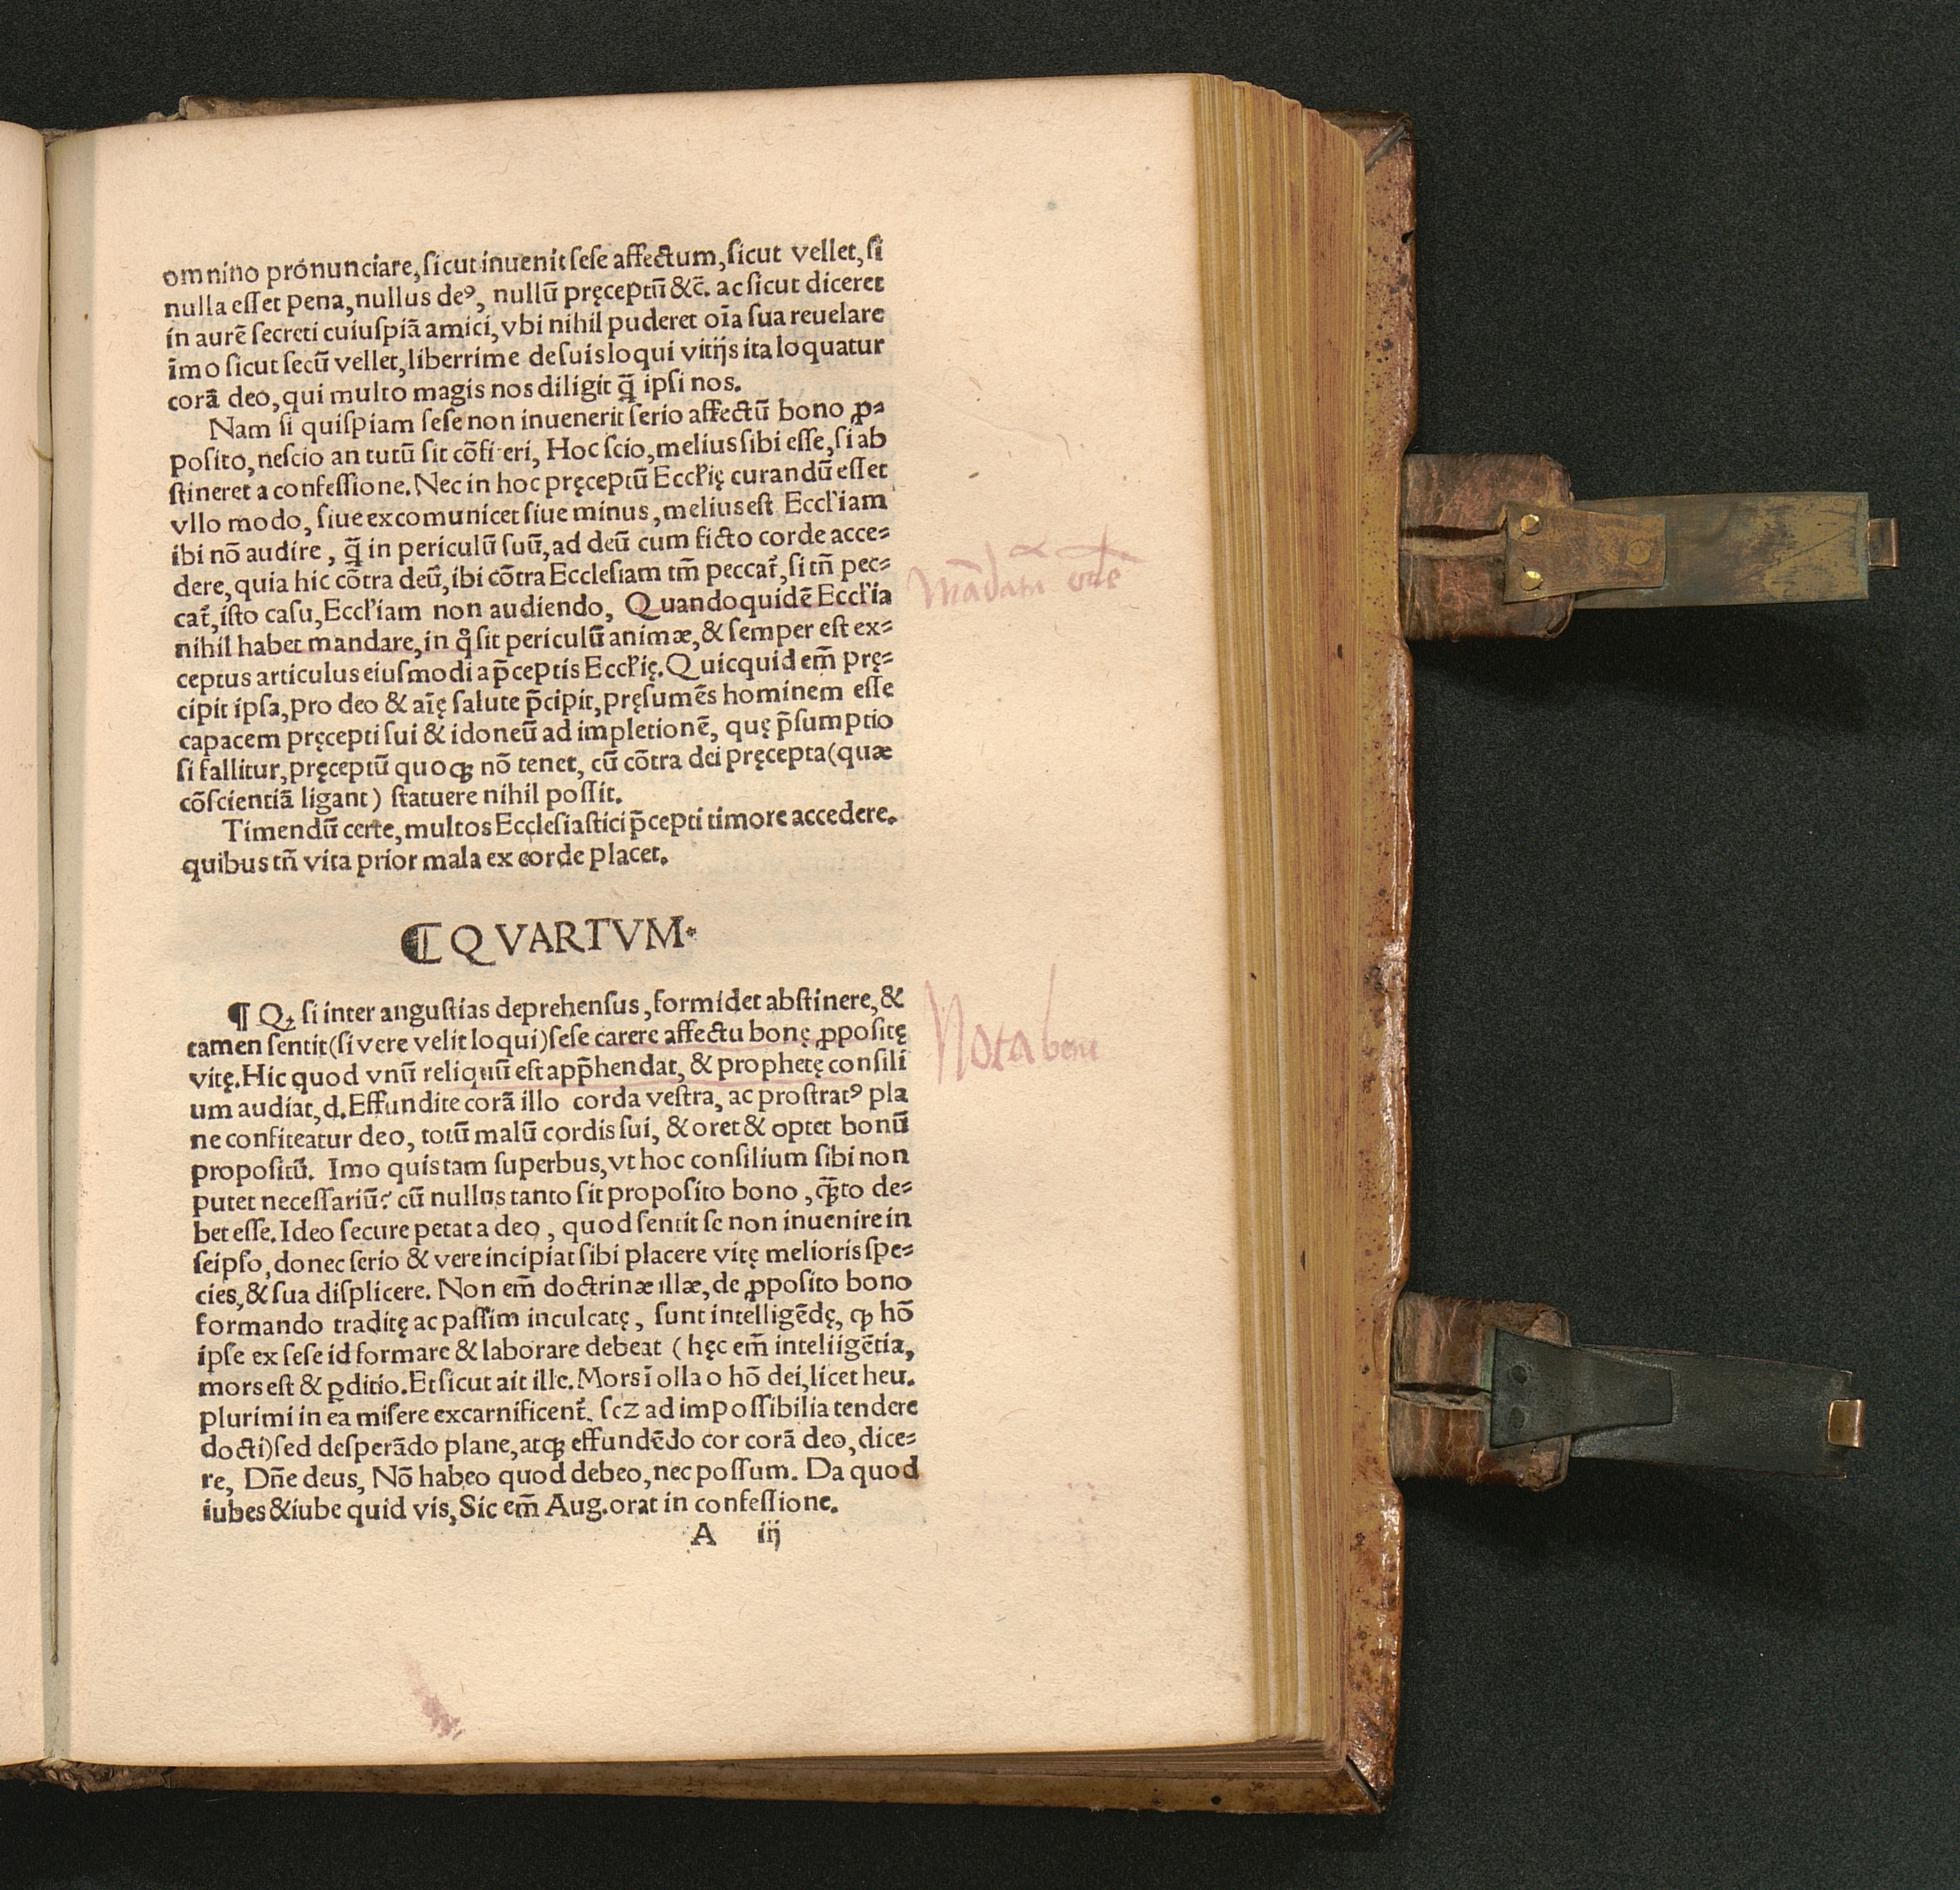 omnino pronunciare, sicut inuenit sese affectum, sicut vellet, si
nulla esset pena, nullus deꝰ, nullū pręceptū &c̄. ac sicut diceret
in aurē secreti cuiuspiā amici, vbi nihil puderet oīa sua reuelare
īmo sicut secū vellet, liberrime de suis loqui vitijs ita loquatur
corā deo, qui multo magis nos diligit q̄̄ ipsi nos.
Nam si quispiam sese non inuenerit serio affectū bono ꝓ⸗
posito, nescio an tutū sit cōfi eri, Hoc scio, melius sibi esse, si ab
stineret a confessione. Nec in hoc pręceptū Eccl'ię curandū esset
vllo modo, siue excomunicet siue minus, melius est Eccl'iam
ibi nō audire, q̄̄ in periculū suū, ad deū cum ficto corde acce⸗
dere, quia hic cōtra deū, ibi cōtra Ecclesiam tm̄ peccat᷑, si tn̄ pec⸗
cat᷑, isto casu, Eccl'iam non audiendo, Quandoquidē Eccl'ia
nihil habet mandare, in q̊ sit periculū animæ, & semper est ex⸗
ceptus articulus eiusmodi a p̄ceptis Eccl'ię. Quicquid em̄ prę⸗
cipit ipsa, pro deo & aīę salute p̄cipit, pręsumēs hominem esse
capacem pręcepti sui & idoneū ad impletionē, quę p̄sumptio
si fallitur, pręceptū quoqꝫ nō tenet, cū cōtra dei pręcepta (quæ
cōscientiā ligant) statuere nihil possit.
Timendū certe, multos Ecclesiastici p̄cepti timore accedere.
quibus tn̄ vita prior mala ex corde placet.
Mādatū
⸿ QVARTVM.
¶ Qꝫ si inter angustias deprehensus, formidet abstinere, &
tamen sentit (si vere velit loqui) sese carere affectu bonę ꝓpositę
vitę. Hic quod vnū reliquū est app̄hendat, & prophetę consili
um audiat, d. Effundite corā illo corda vestra, ac prostratꝰ pla
ne confiteatur deo, totū malū cordis sui, & oret & optet bonū
propositū. Imo quis tam superbus, vt hoc consilium sibi non
putet necessariū? cū nullus tanto sit proposito bono, q̄̄to de⸗
bet esse. Ideo secure petat a deo, quod sentit se non inuenire in
seipso, donec serio & vere incipiat sibi placere vitę melioris spe⸗
cies, & sua displicere. Non em̄ doctrinæ illæ, de ꝓposito bono
formando traditę ac passim inculcatę, sunt intelligēdę, ꝙ hō
ipse ex sese id formare & laborare debeat (hęc em̄ inteliigētia,
mors est & ꝑditio. Et sicut ait ille. Mors ī olla o hō dei, licet heu.
plurimi in ea misere excarnificent᷑. scz ad impossibilia tendere
docti) sed desperādo plane, atqꝫ effundēdo cor corā deo, dice⸗
re, Dn̄e deus, Nō habeo quod debeo, nec possum. Da quod
iubes & iube quid vis, Sic em̄ Aug. orat in confessione.
Nota bene
A iij